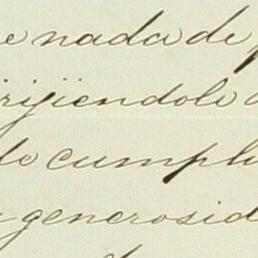 e nada de
rijiendole
de cumpli
generosid